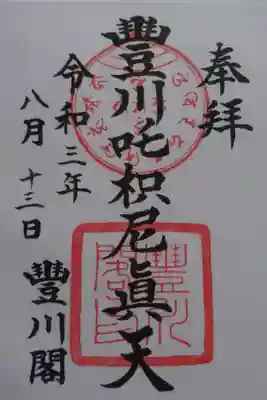 奉拝
豐川吒枳尼眞天
令和三年
八月十三日
豐川閣
豐川閣印